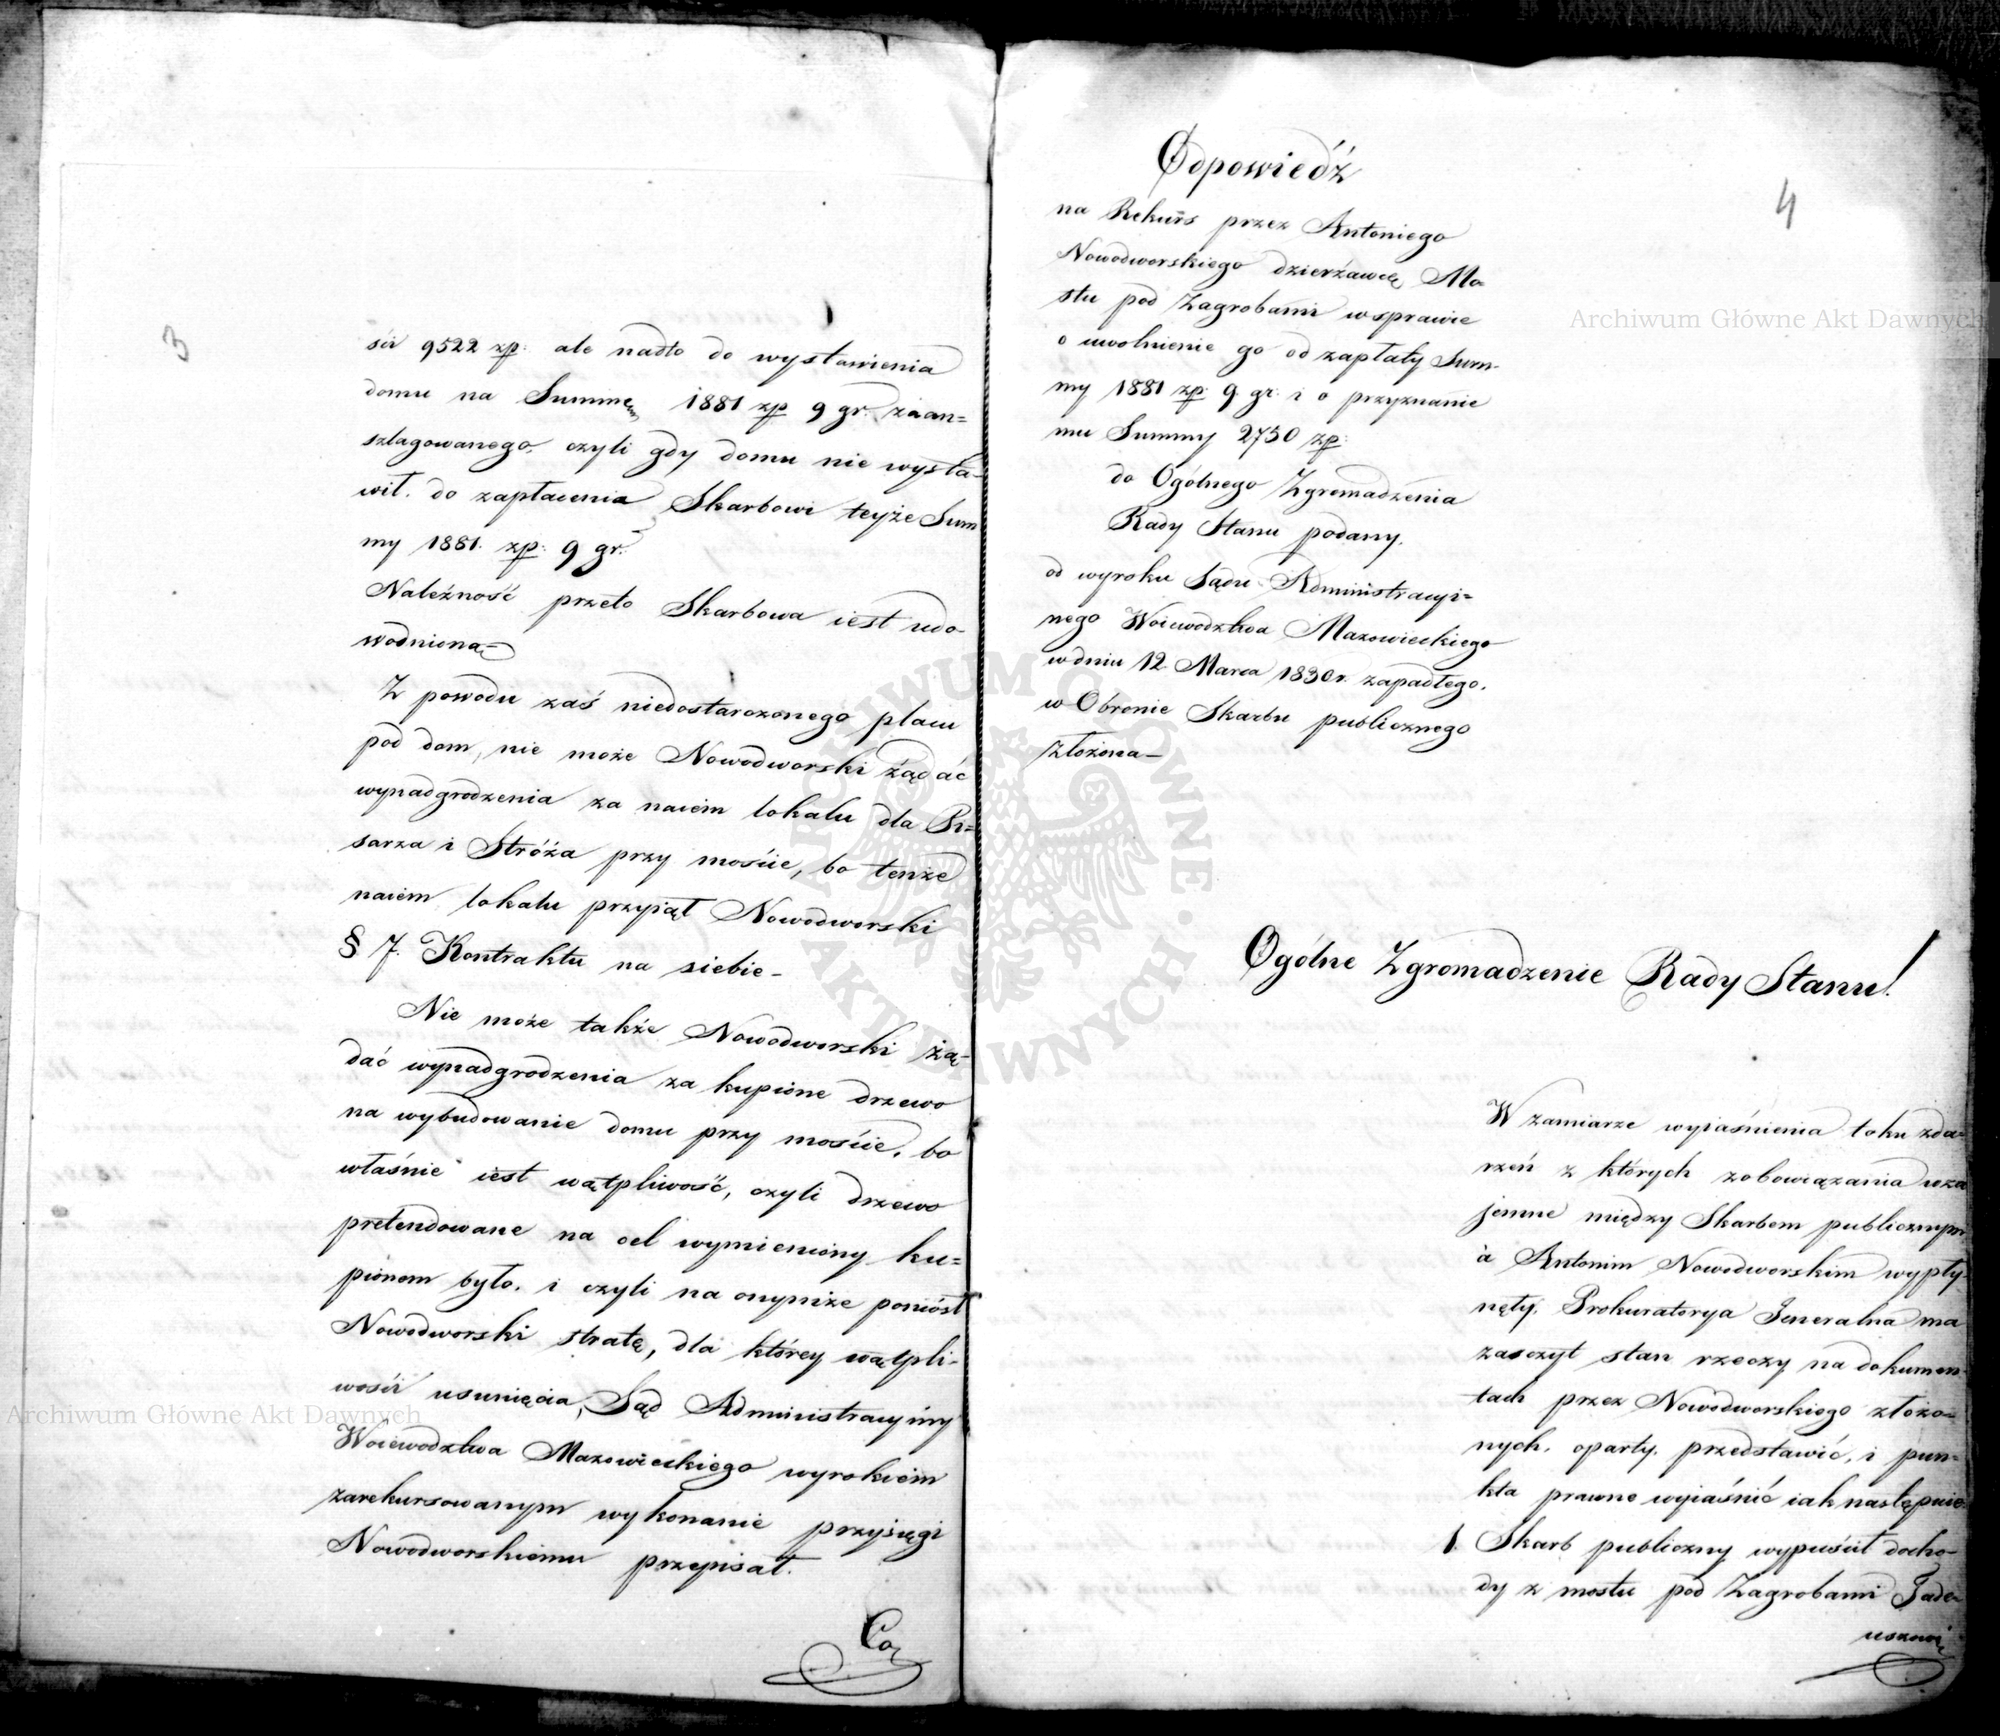 3
śći 9522 zp: ale nadto do wystawienia
domu na Summę 1881 zp 9 gr. zaan=
szlagowanego, czyli gdy domu nie wysta-
wił. do zapłacenia Skarbowi teyże Sum
my 1881. zp: 9 gr:
Należność przeto Skarbowa iest udo-
wodnioną
Z powodu zaś niedostarczonego placu
pod dom, nie może Nowodworski żądać
wynadgrodzenia za naiem lokalu dla Pi=
sarza i Stróża przy moście, bo tenże
naiem lokalu przyiął Nowodworski
§ 7. Kontraktu na siebie-
Nie może także Nowodworski żą-
dać wynadgrodzenia za kupione drzewo
na wybudowanie domu przy moście, bo
właśnie iest wątpliwość, czyli drzewo
pretendowane na cel wymieniony ku=
pionem było, i czyli na onymże poniósł
Nowodworski stratę, dla którey wątpli-
wości usunięcia, Sąd Administracyiny
Woiewodztwa Mazowieckiego wyrokiem
zarekursowanym wykonanie przysięgi
Nowodworskiemu przepisał.
Co
4
Odpowiedź
na Rekurs przez Antoniego
Nowodworskiego dzierżawcę Mo-
stu pod Zagrobami w sprawie
o uwolnienie go od zapłaty Sum-
my 1881 zp: 9. gr: i o przyznanie
mu Summy 2750 zp:
do Ogólnego Zgromadzenia
Rady Stanu podany.
od wyroku Sądu Administracyi=
nego Woiewodztwa Mazowieckiego
w dniu 12 Marca 1830 r. zapadłego.
w Obronie Skarbu publicznego
złożona-
Ogólne Zgromadzenie Rady Stanu!
W zamiarze wyiaśnienia toku zda-
rzeń z których zobowiązania wza
jemne między Skarbem publicznym
a Antonim Nowodworskim wypły-
nęły, Prokuratorya Jeneralna ma
zaszczyt stan rzeczy na dokumen-
tach przez Nowodworskiego złożo-
nych, oparty, przedstawić, i pun-
kta prawne wyiaśnić iak następuie
1. Skarb publiczny wypuścił docho-
dy z mostu pod Zagrobami Tade-
uszowi
Archiwum Główne Akt Dawnych
Archiwum Główne Akt Dawnych
ARCHIWUM GŁÓWNE AKT DAWNYCH